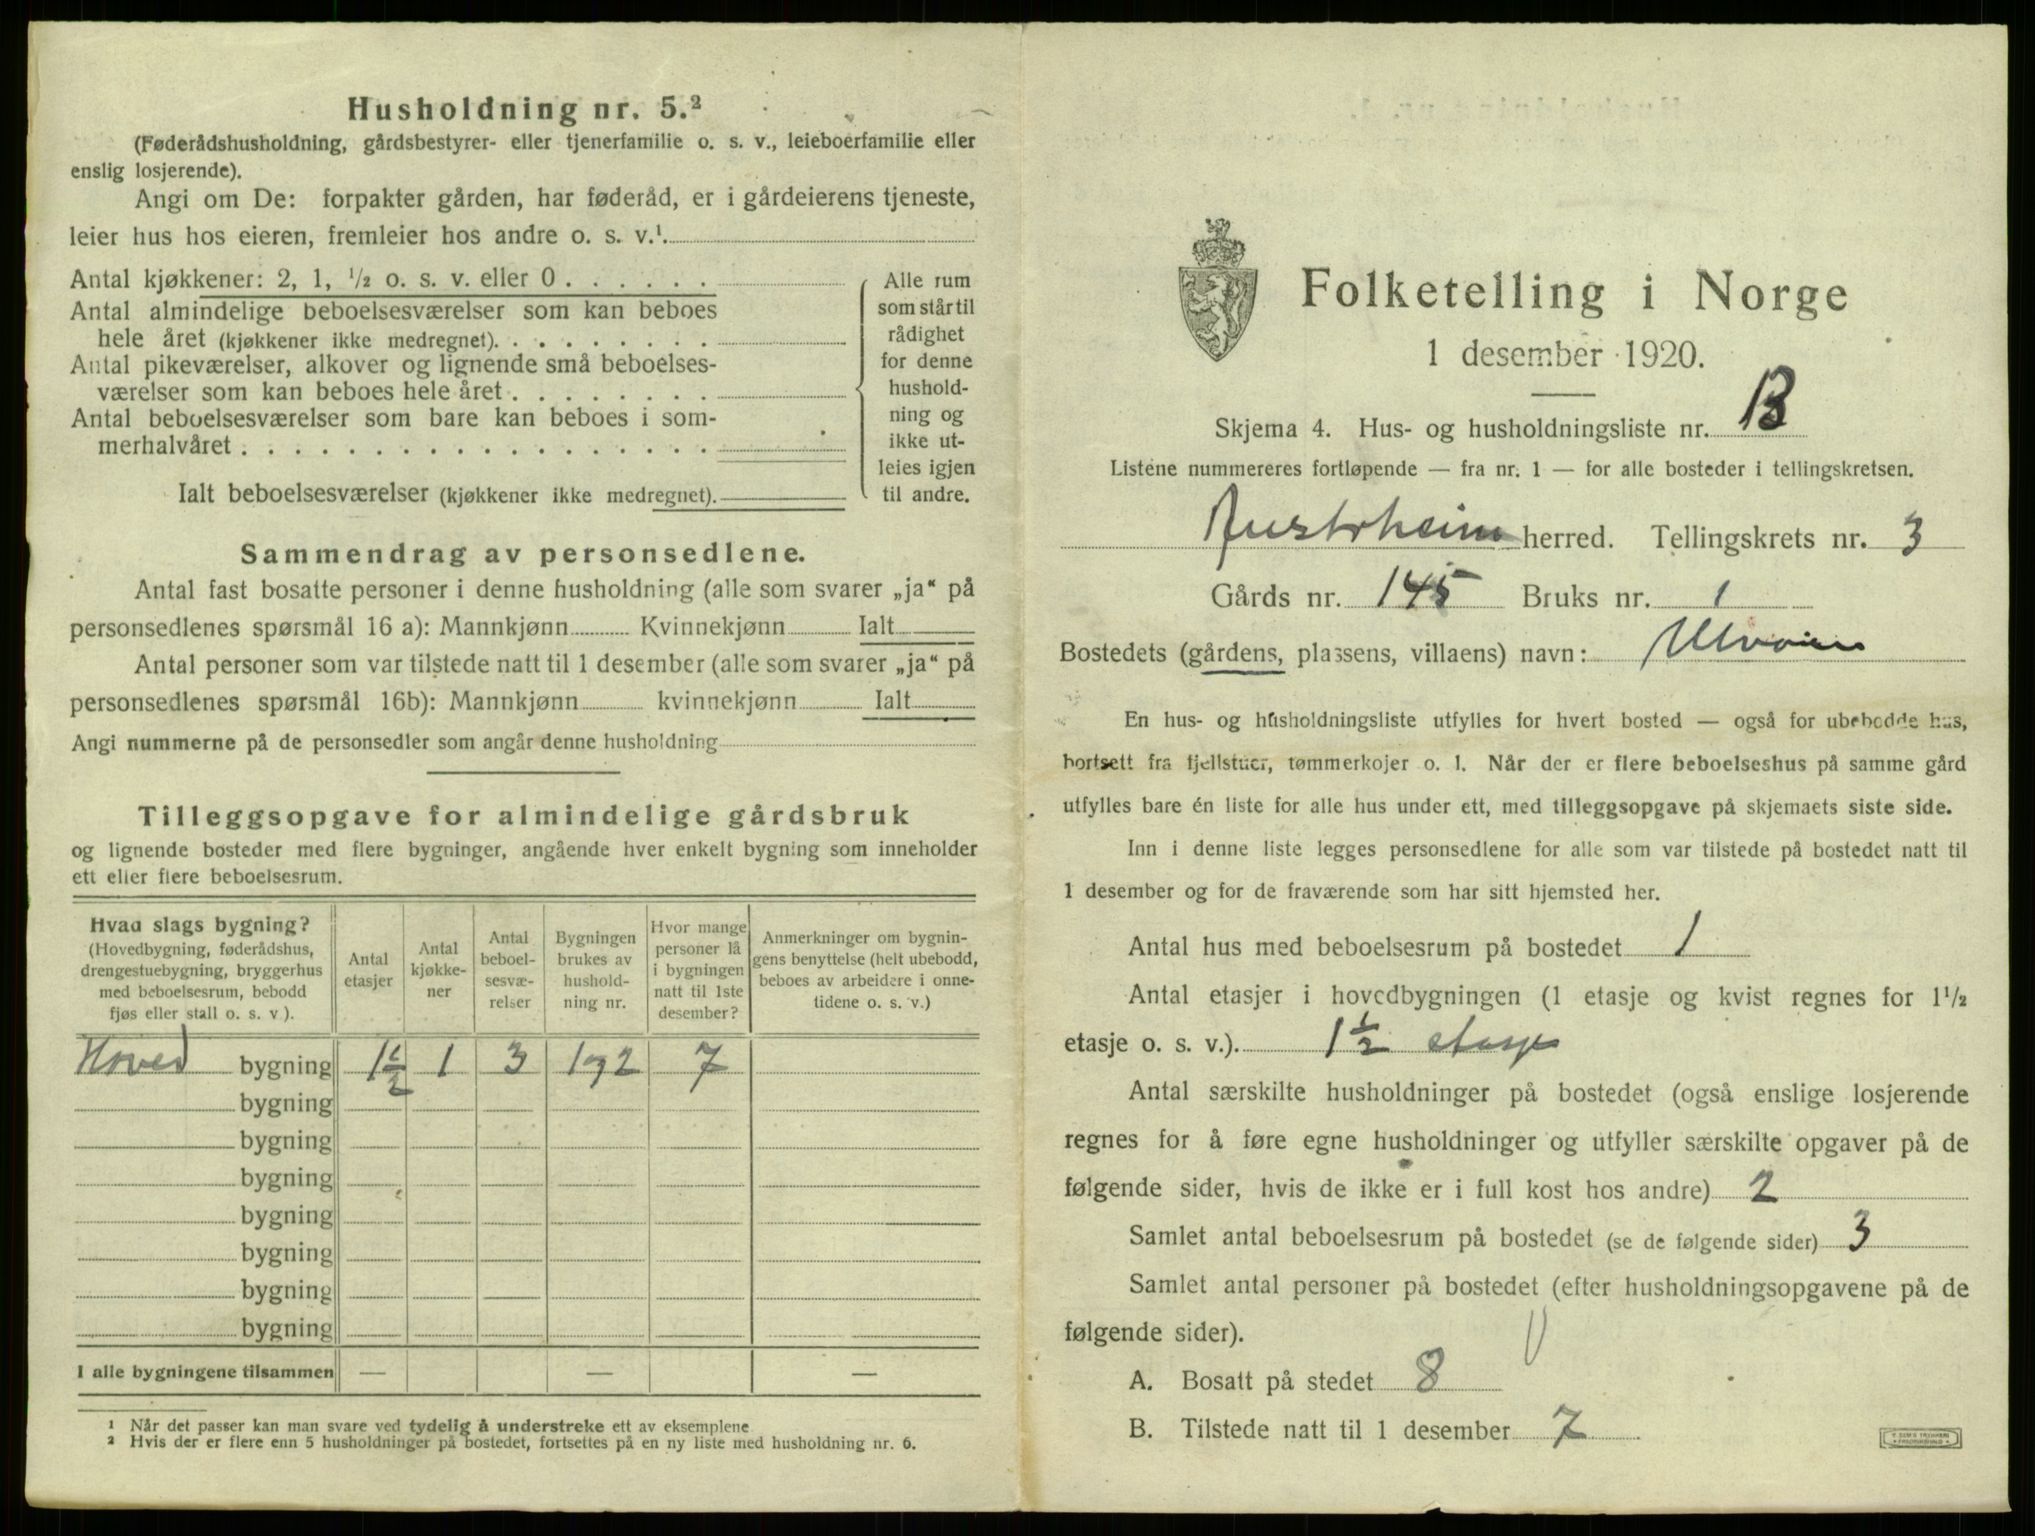 Husholdning nr. 5.²
(Føderådshusholdning, gårdsbestyrer- eller tjenerfamilie o. s. v., leieboerfamilie eller
enslig losjerende).
Angi om De: forpakter gården, har føderåd, er i gårdeierens tjeneste,
leier hus hos eieren, fremleier hos andre o. s. v.¹
Antal kjøkkener: 2, 1, ½ o. s. v. eller 0 . . . . . .
Antal almindelige beboelsesværelser som kan beboes
hele året (kjøkkener ikke medregnet). . . . . . . . .
Antal pikeværelser, alkover og lignende små beboelses-
værelser som kan beboes hele året . . . . . . . .
Antal beboelsesværelser som bare kan beboes i som-
merhalvåret . . . . . . . . . . . . . . . . . .
Ialt beboelsesværelser (kjøkkener ikke medregnet).
Alle rum
som står til
rådighet
for denne
hushold-
ning og
ikke ut-
leies igjen
til andre.
Sammendrag av personsedlene.
Antal fast bosatte personer i denne husholdning (alle som svarer „ja“ på
personsedlenes spørsmål 16 a): Mannkjønn Kvinnekjønn Ialt
Antal personer som var tilstede natt til 1 desember (alle som svarer „ja“ på
personsedlenes spørsmål 16b): Mannkjønn kvinnekjønn Ialt
Angi nummerne på de personsedler som angår denne husholdning
Tilleggsopgave for almindelige gårdsbruk
og lignende bosteder med flere bygninger, angående hver enkelt bygning som inneholder
ett eller flere beboelsesrum.
Hvad slags bygning?
(Hovedbygning, føderådshus,
drengestuebygning, bryggerhus
med beboelsesrum, bebodd
fjøs eller stall o. s. v ).
Antal
etasjer
Antal
kjøkke-
ner
Antal
beboel-
sesvæ-
relser
Bygningen
brukes av
hushold-
ning nr.
Hvor mange
personer lå
i bygningen
natt til 1ste
desember?
Anmerkninger om bygnin-
gens benyttelse (helt ubebodd,
beboes av arbeidere i onne-
tidene o. s. v.)
Hoved bygning 1½ 1 3 1 og 2 7
bygning
bygning
bygning
bygning
bygning
bygning
bygning
I alle bygningene tilsammen — — —
¹ Når det passer kan man svare ved tydelig å understreke ett av eksemplene
² Hvis der er flere enn 5 husholdninger på bostedet, fortsettes på en ny liste med husholdning nr. 6.
Folketelling i Norge
1 desember 1920.
Skjema 4. Hus- og husholdningsliste nr. 13
Listene nummereres fortløpende — fra nr. 1 — for alle bosteder i tellingskretsen.
Austrheim herred. Tellingskrets nr. 3
Gårds nr. 145 Bruks nr. 1
Bostedets (gårdens, plassens, villaens) navn:
En hus- og husholdningsliste utfylles for hvert bosted — også for ubebodde hus,
bortsett fra fjellstuer, tømmerkojer o. l. Når der er flere beboelseshus på samme gård
utfylles bare én liste for alle hus under ett, med tilleggsopgave på skjemaets siste side.
Inn i denne liste legges personsedlene for alle som var tilstede på bostedet natt til
1 desember og for de fraværende som har sitt hjemsted her.
Antal hus med beboelsesrum på bostedet 1
Antal etasjer i hovedbygningen (1 etasje og kvist regnes for 1½
etasje o. s. v.). 1½ etasje
Antal særskilte husholdninger på bostedet (også enslige losjerende
regnes for å føre egne husholdninger og utfyller særskilte opgaver på de
følgende sider, hvis de ikke er i full kost hos andre) 2
Samlet antal beboelsesrum på bostedet (se de følgende sider) 3
Samlet antal personer på bostedet (efter husholdningsopgavene på de
følgende sider).
A. Bosatt på stedet 8
B. Tilstede natt til 1 desember 7